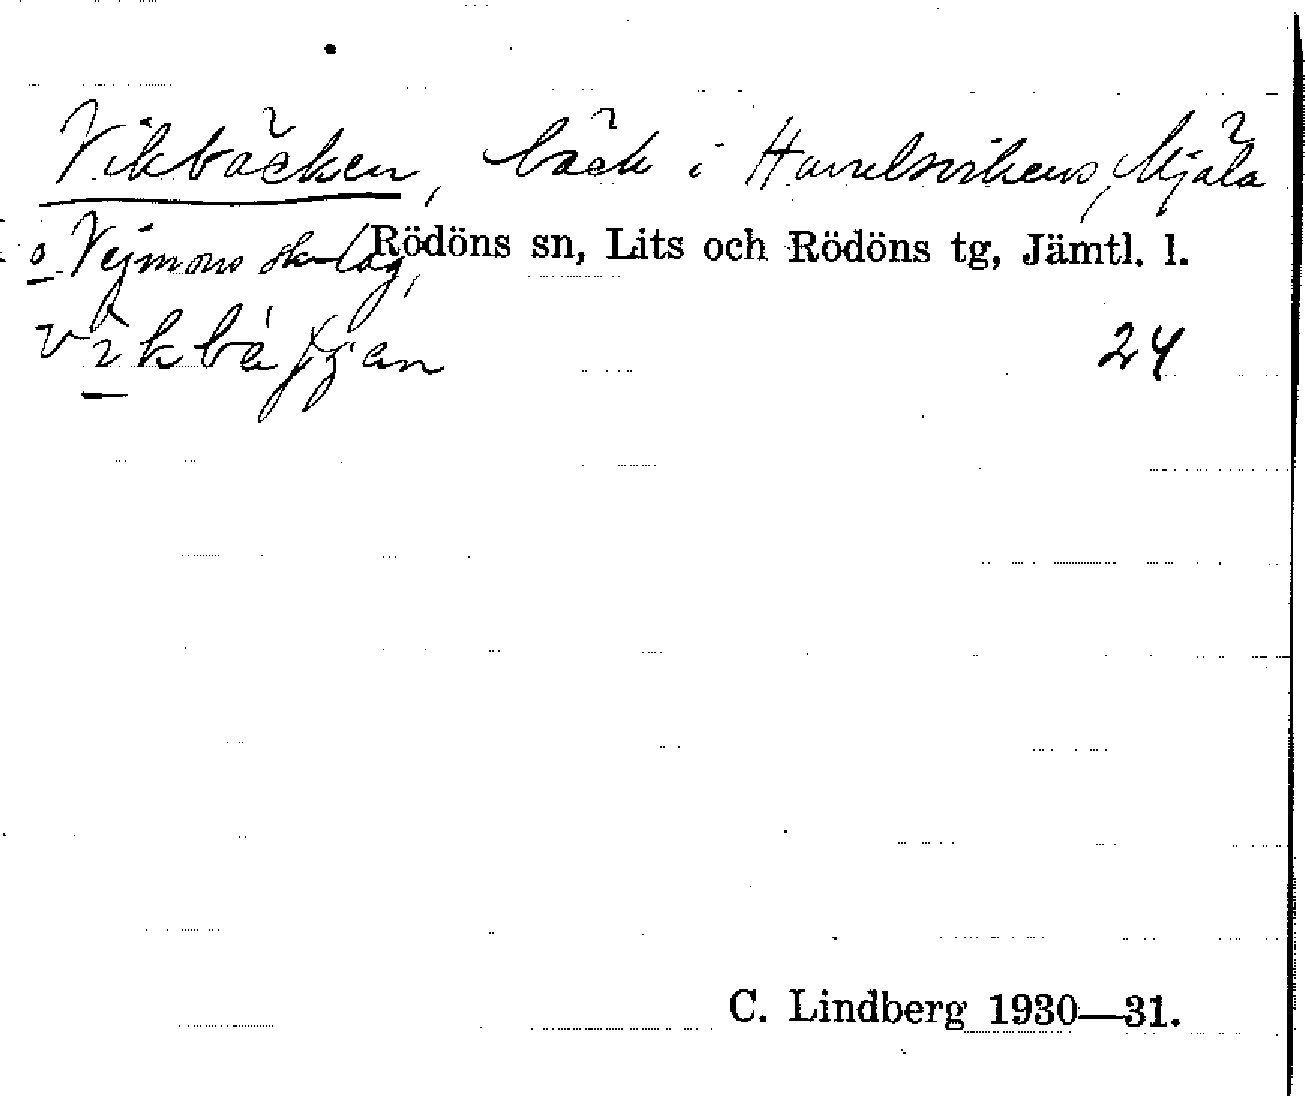 Vikbäcken, bäck i Havelsvikens, Mjäla
o Vejmons skslag, Rödöns sn, Lits och Rödöns tg, Jämtl. l.
vikbäjjan 24
C. Lindberg 1930—31.